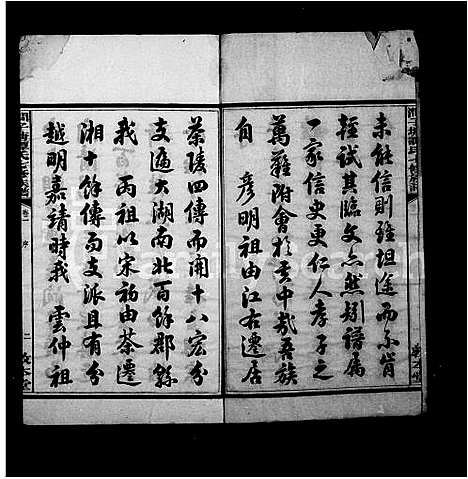 未能信則雖坦途而不肯
輕試其臨文亦然矧譜属
一家信史更仁人孝子之
萬難附會於其中哉吾族
自 彥明祖由江右遷居
茶陵四傳而開十八宏分
支遍大湖南北百餘郡縣
我 丙祖以宋初由茶遷
湘十餘傳而支派且有分
越明嘉靖時我 雲仲祖
卷一 序
二 敦本堂
FamilySearch